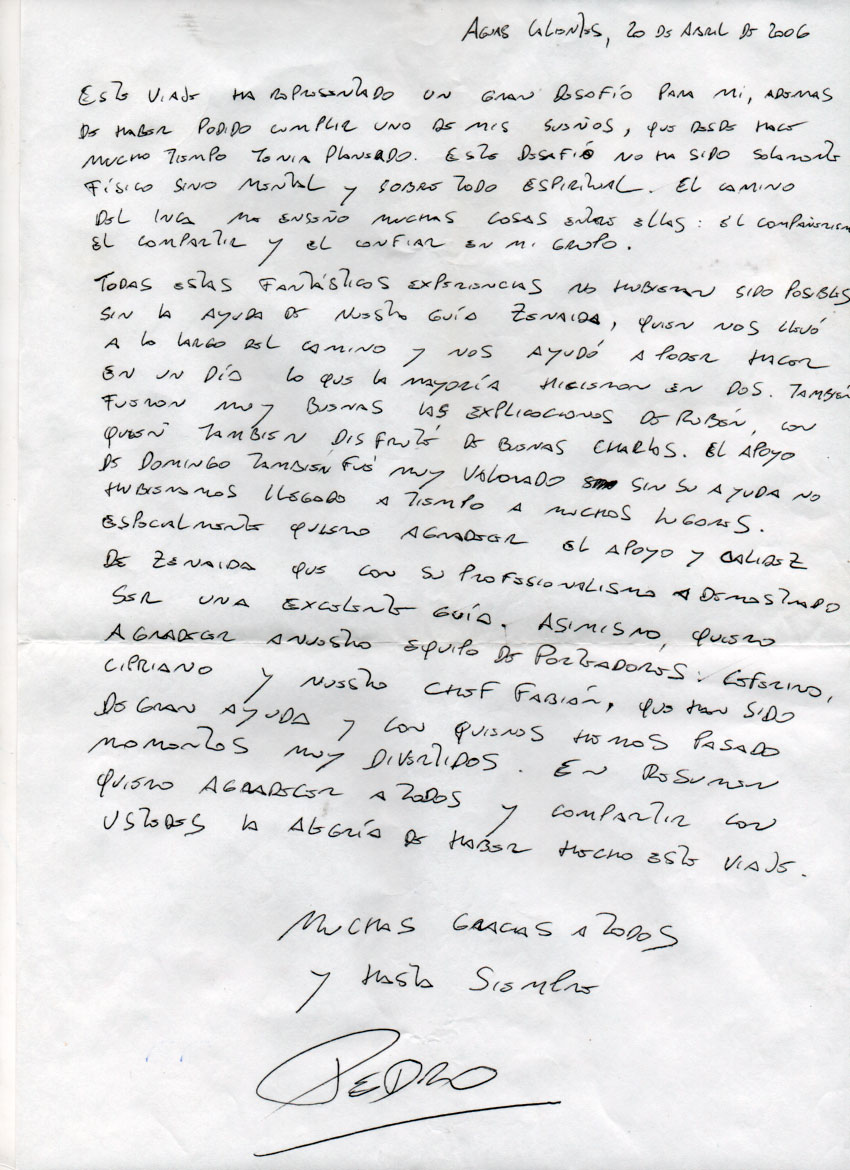 Aguas Calientes, 20 de Abril de 2006
Este viaje ha representado un gran desafío para mi, ademas
de haber podido cumplir uno de mis sueños, que desde hace
mucho tiempo tenia planeado. Este desafió no ha sido solamente
físico sino mental y sobre todo espiritual. El camino
del Inca me enseño muchas cosas entre ellas: el compañerism
el compartir y el confiar en mi grupo.
Todas estas fantásticos experiencias no hubieran sido posibles
sin la ayuda de nuestro guía Zenaida, quien nos llevó
a lo largo del camino y nos ayudó a poder hacer
en un día lo que la mayoría hicieron en dos. También
fueron muy buenas las explicaciones de Rubén, con
quien tambien disfruté de buenas charlas. El apoyo
de Domingo también fué muy valorado sin su ayuda no
hubieramos llegado a tiempo a muchos lugares.
Especialmente quiero agradecer el apoyo y calidez
de Zenaida que con su profesionalismo a demostrado
ser una excelente guía. Asimismo, quiero
agradecer a nuestro equipo de porteadores: Ceferino,
Cipriano y nuestro chef Fabián, que han sido
de gran ayuda y con quienes hemos pasado
momentos muy divertidos. En resumen
quiero agradecer a todos y compartir con
ustedes la alegría de haber hecho este viaje.
Muchas gracias a todos
y hasta siempre
Pedro